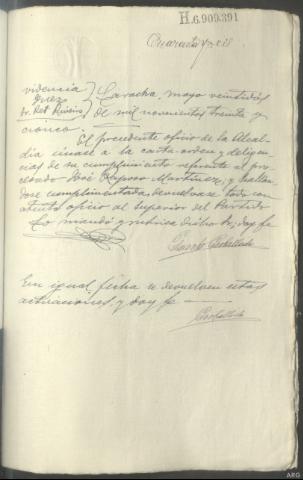 H.6.909.391
Cuarenta y seis
videncia
Juez
Sr. Ret Riveiro
Caracha, mayo veintidos
de mil novecientos treinta y
cinco.
El precedente oficio de la Alcal-
dia únase a la carta orden y diligen-
cias de su cumplimiento referente al pro-
cesado José Martinez, y hallan-
dose cumplimentadas devuelvase todo con
atento oficio al Superior del Partido
Lo mandó y rubrica dicho Sr; doy fe
En igual fecha se devuelven estas
actuaciones, y doy fe
ARG